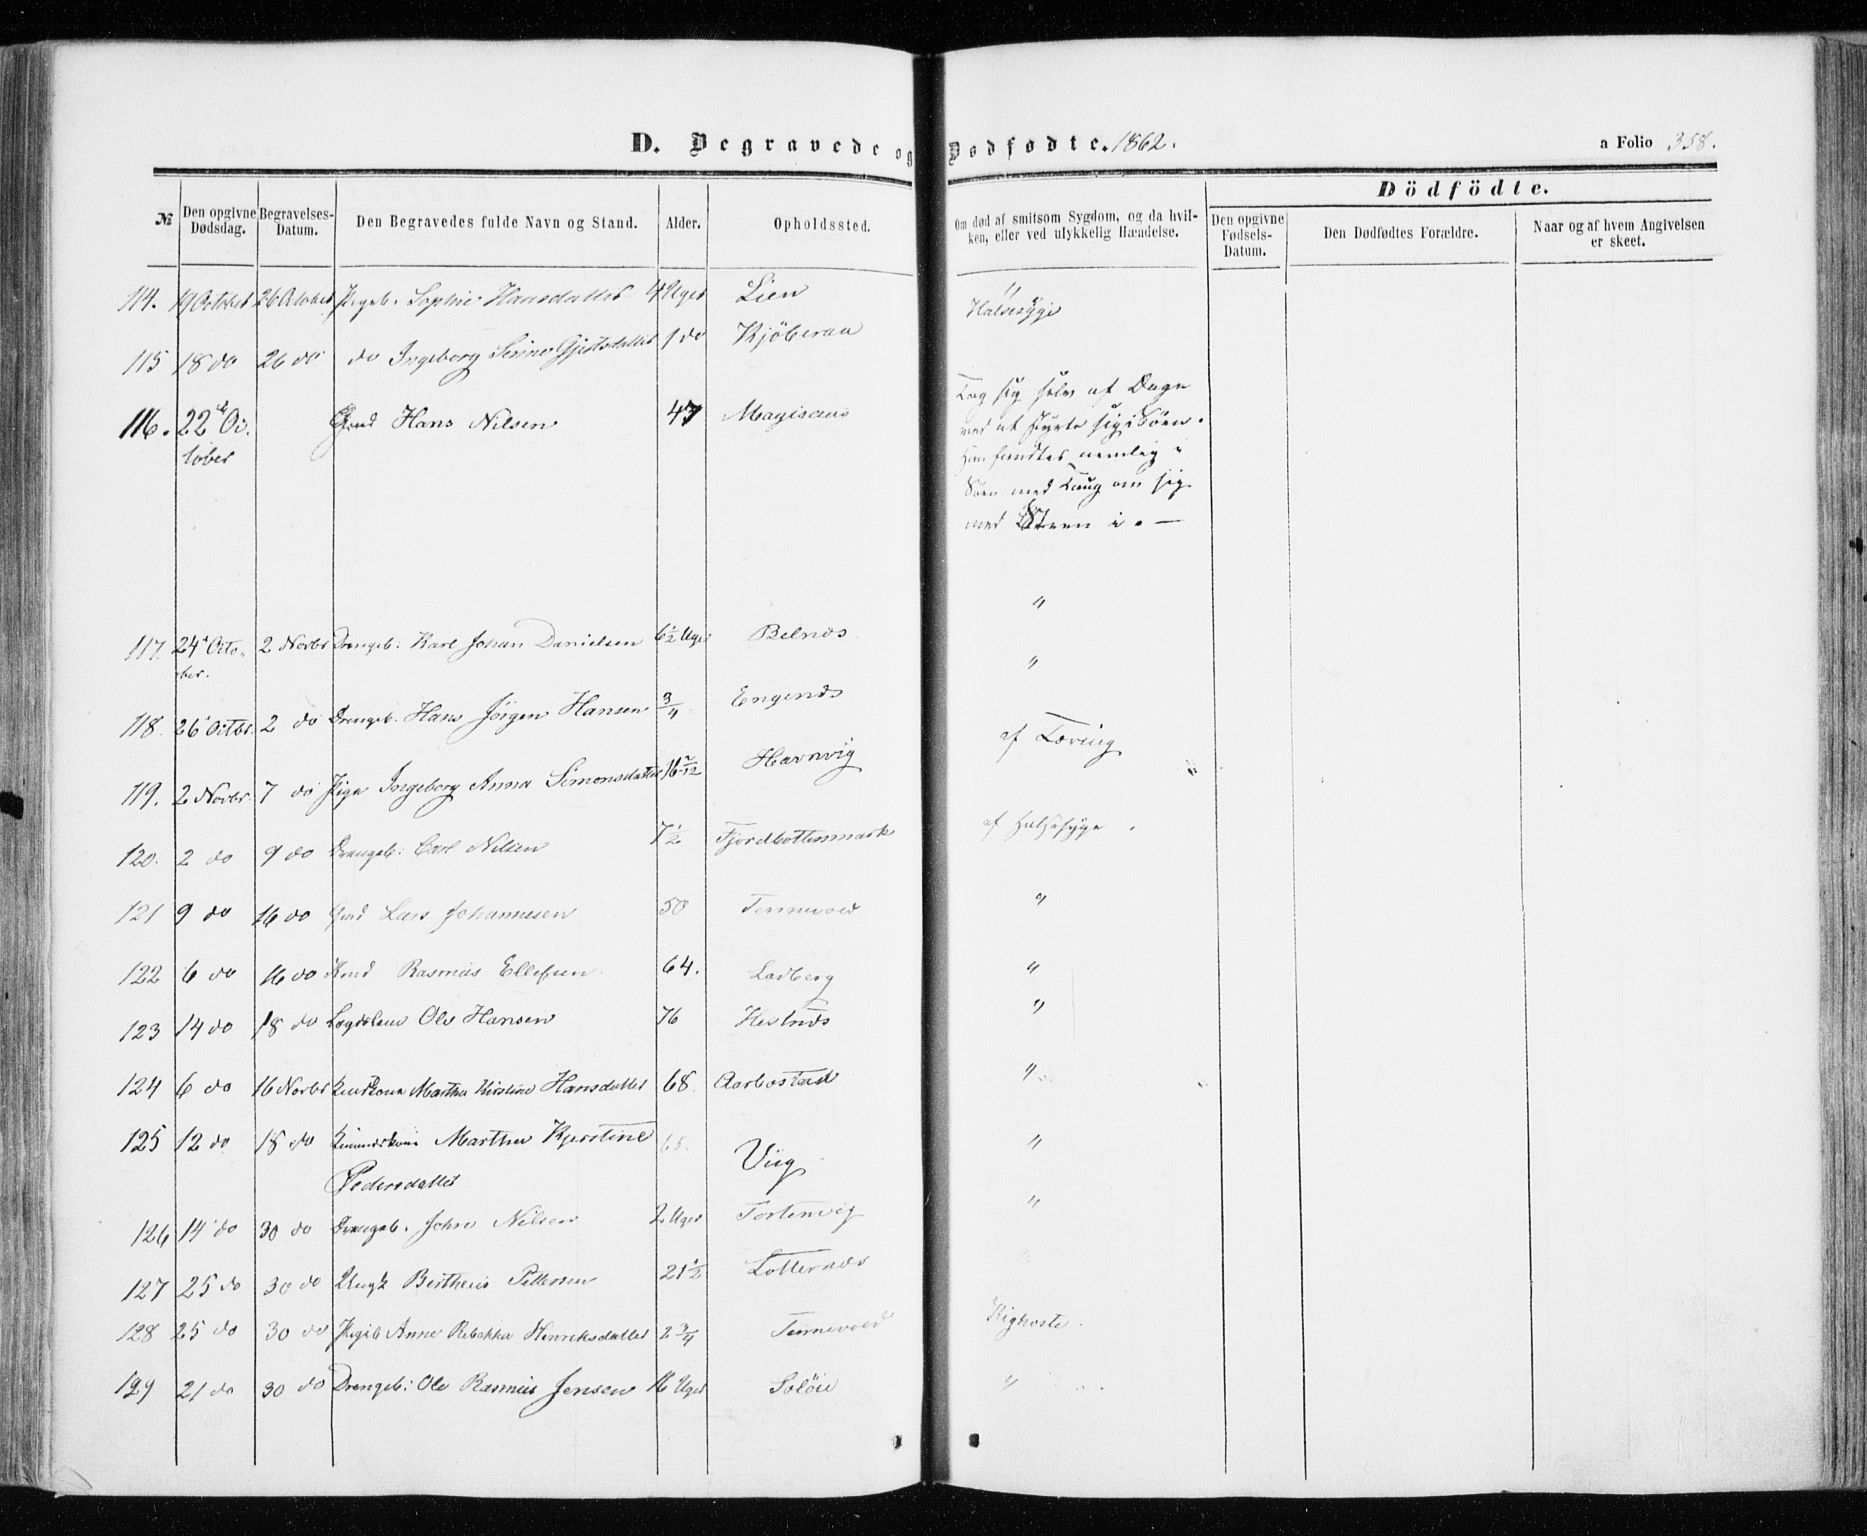 D. Begravede og Dødfødte. 1862.
a Folio 358.
Dödfödte.
№
Den opgivne Dødsdag.
Begravelses-Datum.
Den Begravedes fulde Navn og Stand.
Alder.
Opholdssted.
Om død af smitsom Sygdom, og da hvilken, eller ved ulykkelig Hændelse.
Den opgivne Fødsels-Datum.
Den Dødfødtes Forældre.
Naar og af hvem Angivelsen er skeet.
114. 19 October 26 October Pigeb. Sophie Hansdatter 4 Uger Lien "
115 18 do 26 do do Ingeborg 1 do Kjöberaa Halsesyge
116. 22 October Hans Nilsen 47 Tog sig selv af Dage
med at styrte sig i Söen.
Han fandtes nemlig i
Söen med Taug om sig
med Steen i. —
117. 24 October 2 Novbr Drengeb. Karl Johan Danielsen 6½ Uger Belnæs "
118. 26 Octbr. 2 do Drengeb. Hans Jörgen Hansen 3/4 Engenæs "
119. 2 Novbr. 7 do Pige Ingeborg Anna Simonsdatter 16 7/12 Havnvig af Tæring
120. 2 do 9 do Drengeb. Carl Nilsen 7½ Fjordbottenmark af Halsesyge.
121 9 do 16 do Lars Johannesen 50 Tennevold "
122 6 do 16 do Rasmus Ellefsen 64. Ladberg "
123 14 do 18 do Ole Hansen 76 Hestnæs "
124 6 do 16 Novbr Martha Kirstine Hansdatter 68. Aarbostad "
125 12 do 18 do Marthe Kjerstine 65. Viig "
Pedersdatter
126 14 do 30 do Drengeb. John Nilsen 2 Uger "
127 25 do 30 do Ungk Bertheus Pettersen 21½ Lotternæs
128 25 do 30 do Pigeb Anne Rebekka Henriksdatter 2 3/4 Tennevold Kighoste.
129 21 do 30 do Drengeb. Ole Rasmus Jensen 16 Uger Solöie "